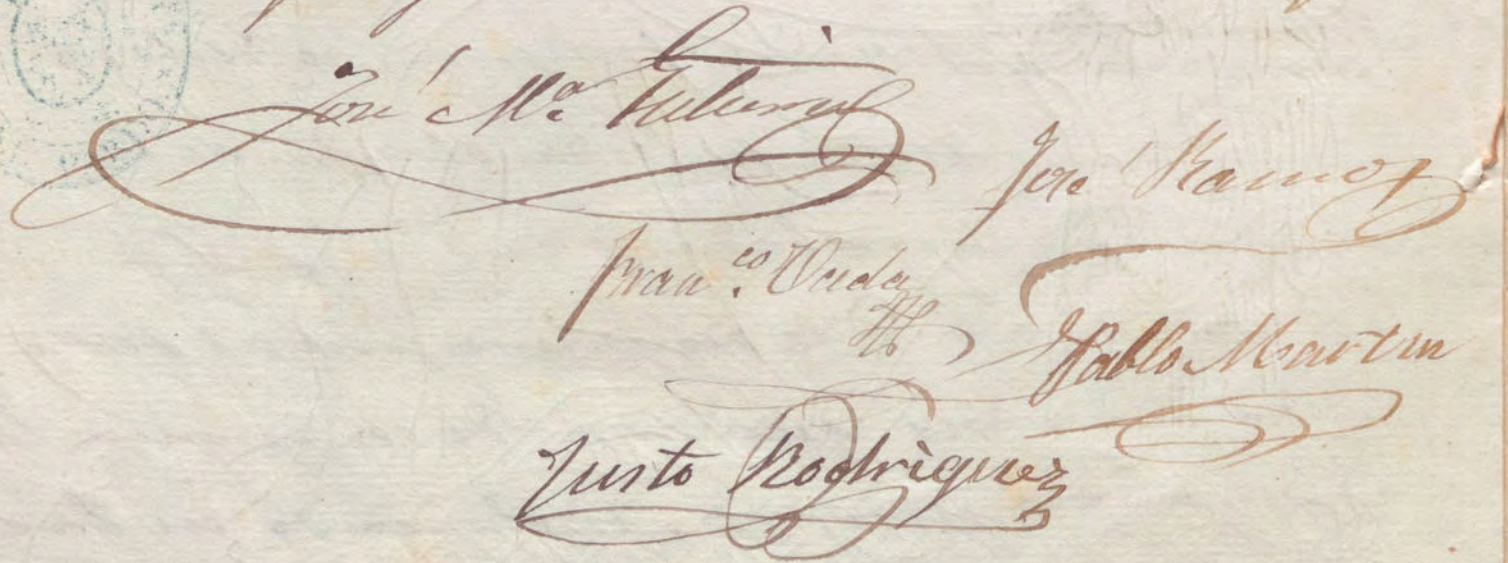 José Mª
José Ramos
Fran.co Vada
Pablo Martin
Justo Rodriguez